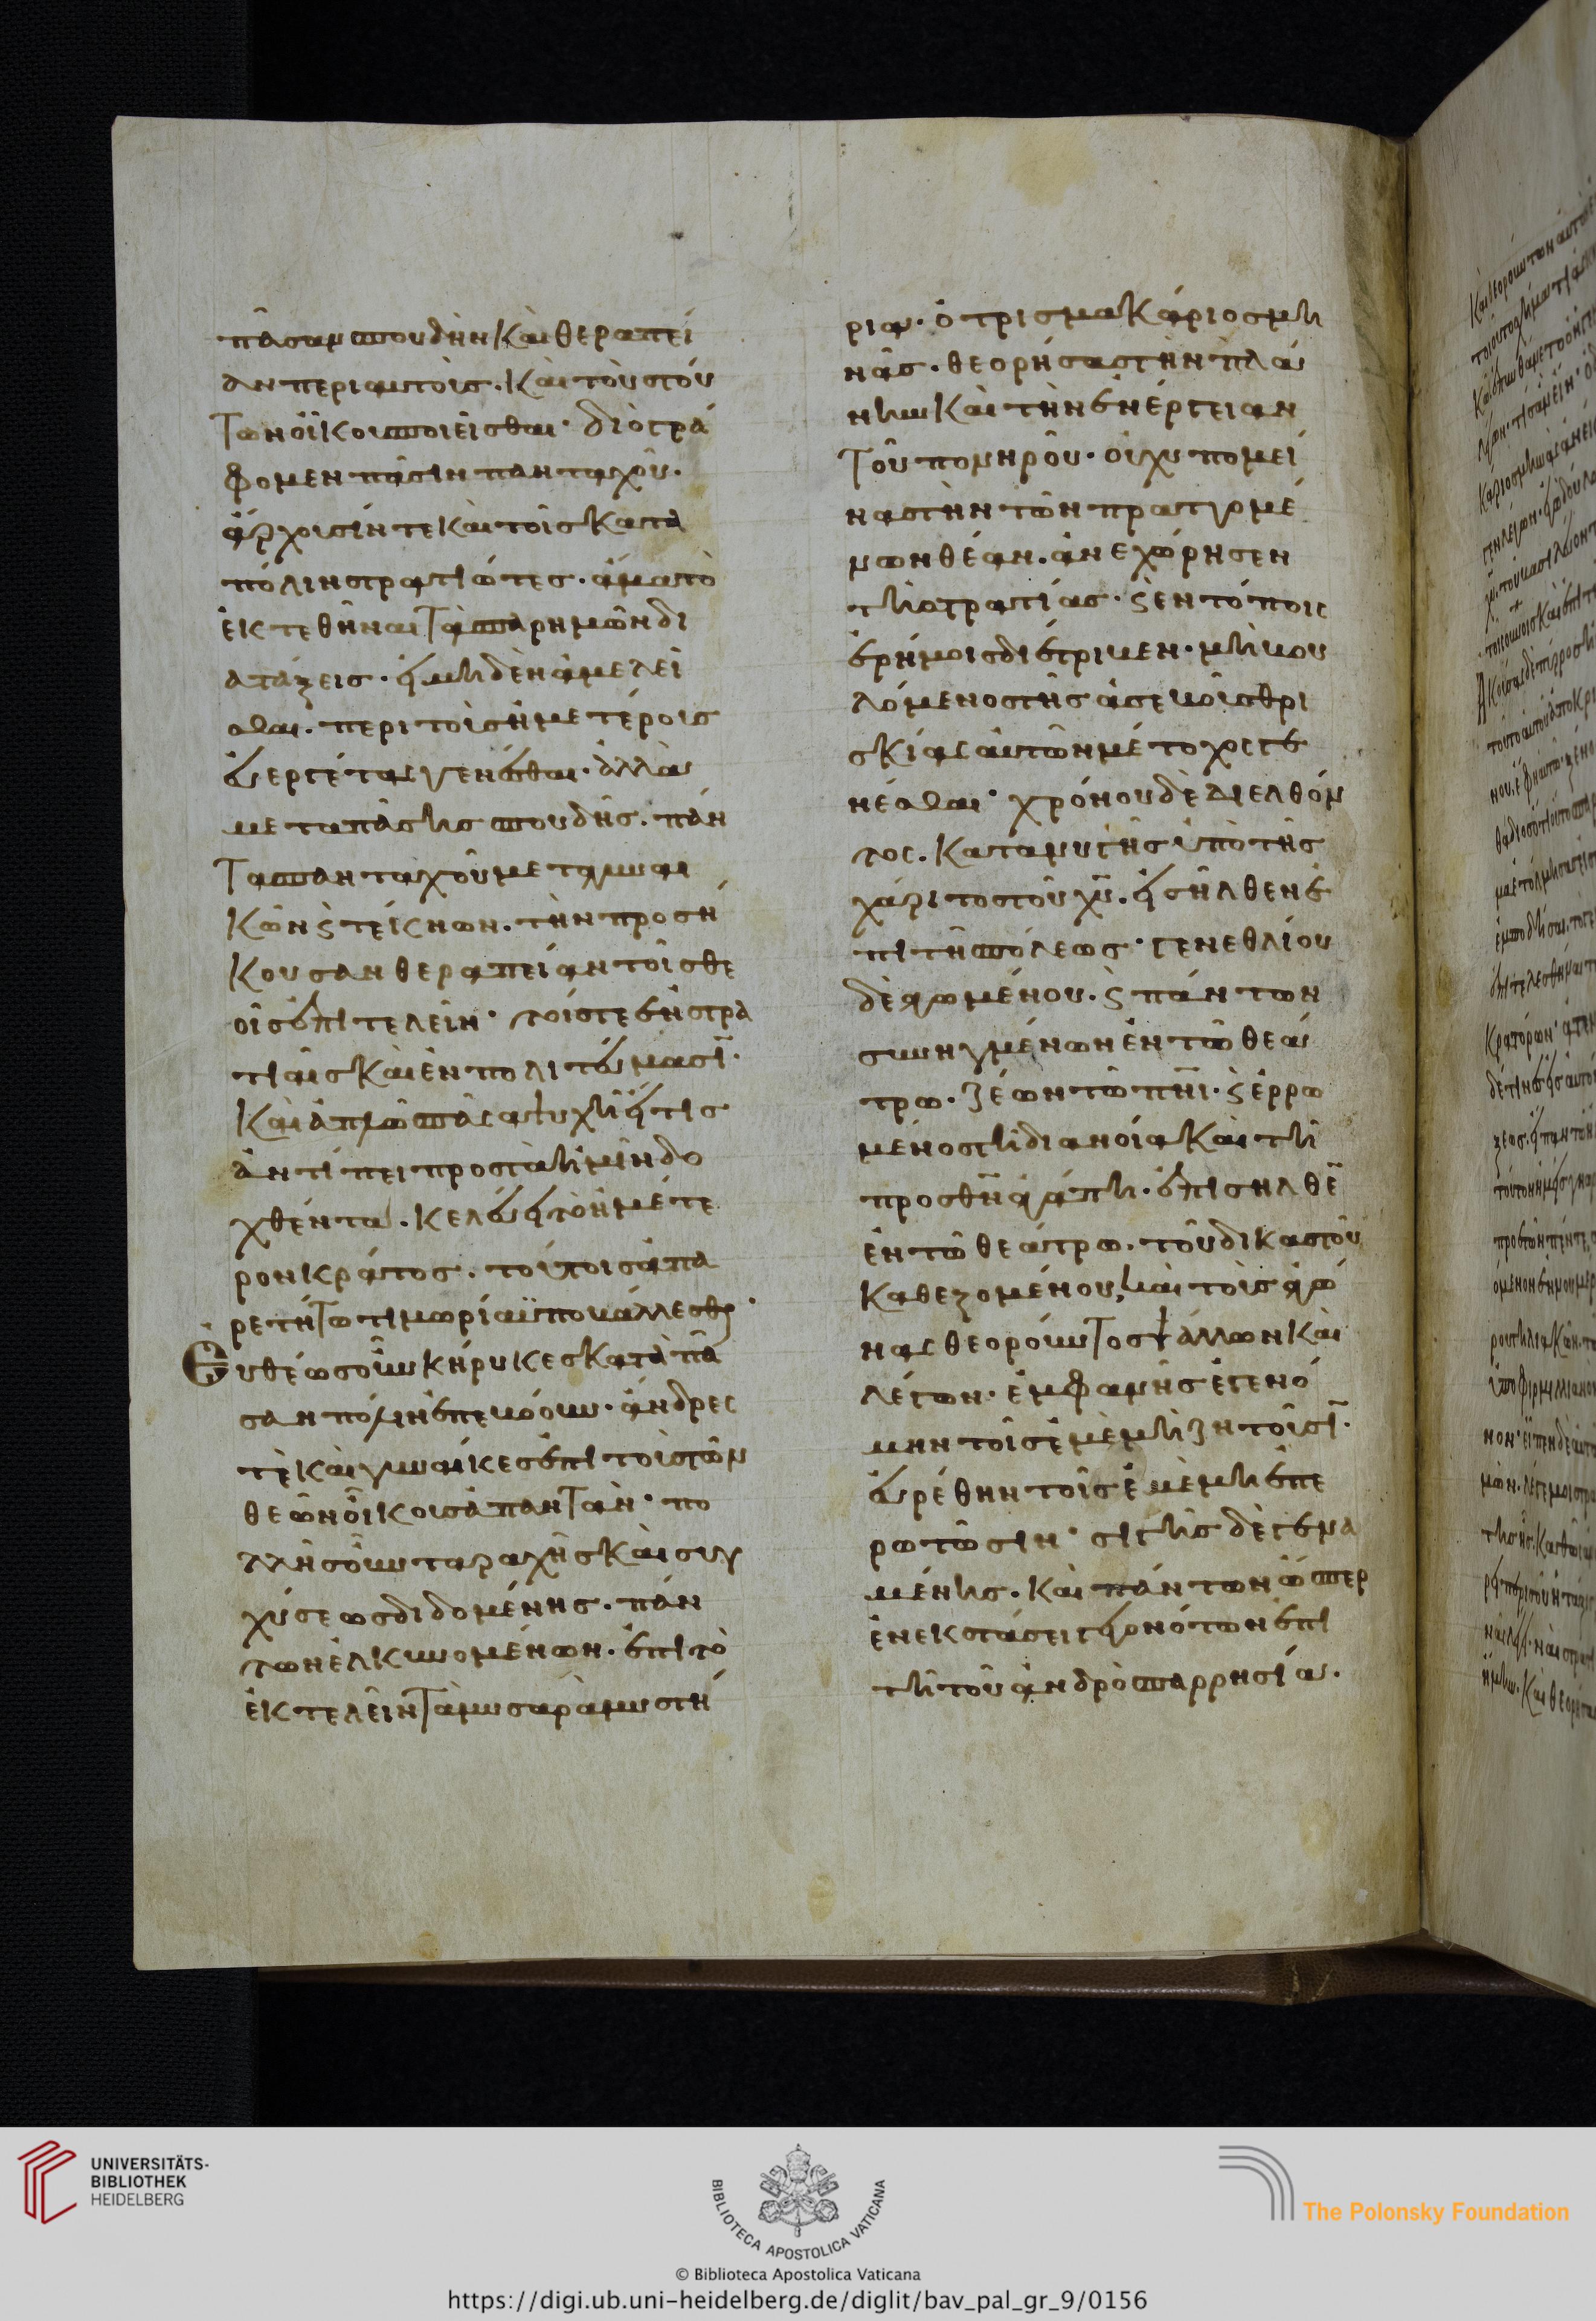 πᾶσαν σπουδὴν καὶ θεραπεί
αν περι αυτοὺς. καὶ τοὺς τού
των οἴκου ποιεῖσθαι· διὸ γρά
φομεν πᾶσιν πανταχοῦ.
ἄρχουσίν τε καὶ τοῖς κατὰ
πόλιν στρατιώτες. ἅμα τὸ
ἐκτεθῆναι τὰ παρ ημῶν δι
ατάξεις. εἰ μηδὲν ἀμελεῖ
σθαι. περι τοὶς ἡμετέροις
εὐεργέτας γενέσθαι. ἀλλὰ
μετα πάσης σπουδῆς. πάν
τας πανταχοῦ μετα γυναι
κῶν ϛ τέκνων. τὴν προσή
κουσαν θεραπείαν τοῖς θε
οῖς ἐπιτελεῖν· τοίς τε ἐν στρα
τιαῖς καὶ ἐν πολιτεύμασῖ.
καὶ ἁπλῶ πάσα τυχὴ εἴ τις
ἀντίπει προς τα ἡμῖν δο
χθέντα. κελεύει τὸ ἡμέτε
ρον κράτος. τούτοις ἀπα
ρετήτω τιμωρία ὑποβάλλεσθαι·
Ευθέως οὖν κήρυκες κατὰ πᾶ
σαν πόλιν ἐπεβόουν. ἄνδρες
τὲ καὶ γυναίκες ἐπι τοὶς τῶν
θεῶν οἴκοις ἀπαντᾶν· πο
λλῆς οὖν ταραχῆς καὶ συγ
χύσεως διδομένης. πάν
των ἑλκυνομένων. ἐπι τὸ
ἐκτελεῖν τὰ μυσαρὰ μυστή
ρια. ὁ τρισμακάριος μη
νᾶς. θεορήσας τὴν πλά
νην καὶ τὴν ἐνέργειαν
τοῦ πονηροῦ. οὐχ υπομεί
νας τὴν τῶν πραττομέ
νων θέαν. ἀνεχώρησεν
τῆ στρατίας. ϛ ἐν τόποις
ἐρήμοις διέτριβεν. μὴ βου
λόμενος τῆς ἀσεβοῦς θρι
σκίας αὐτῶν μέτοχος γε
νέσθαι· χρόνου δὲ διελθόν
τος. κατανυγῆς ὑπὸ τῆς
χάριτος τοῦ χῦ. εἰσῆλθεν ἐ
πι τῆ πόλεως· γενεθλίου
δὲ αγομένου. ϛ πάντων
συνηγμένων ἐν τῶ θεά
τρω. ζέων τῶ πνῖ. ϛ ἐρρω
μένος τῆ διανοία καὶ τῆ
προς θν̄ ἀγάπη. ἐπισηλθε̄
ἐν τῶ θεάτρω. τοῦ δικαστοῦ
καθεζομένου, καὶ τοὺς ἀγῶ
νας θεοροῦντος ψάλλων καὶ
λέγων. ἐμφανὴς ἐγενό
μην τοῖς ἐμὲ μὴ ζητοῦσῖ.
εὑρέθην τοῖς ἐμὲ μὴ ἐπε
ρωτῶσιν· σιγῆς δὲ γενα
μένης. καὶ πάντων ὥσπερ
ἐν εκστάσει γεγονότων ἐπι
τῆ τοῦ ἀνδρὸ παρρησία.
UNIVERSITÄTS-
BIBLIOTHEK
HEIDELBERG
BIBLIOTECA APOSTOLICA VATICANA
The Polonsky Foundation
© Biblioteca Apostolica Vaticana
https://digi.ub.uni-heidelberg.de/diglit/bav_pal_gr_9/0156